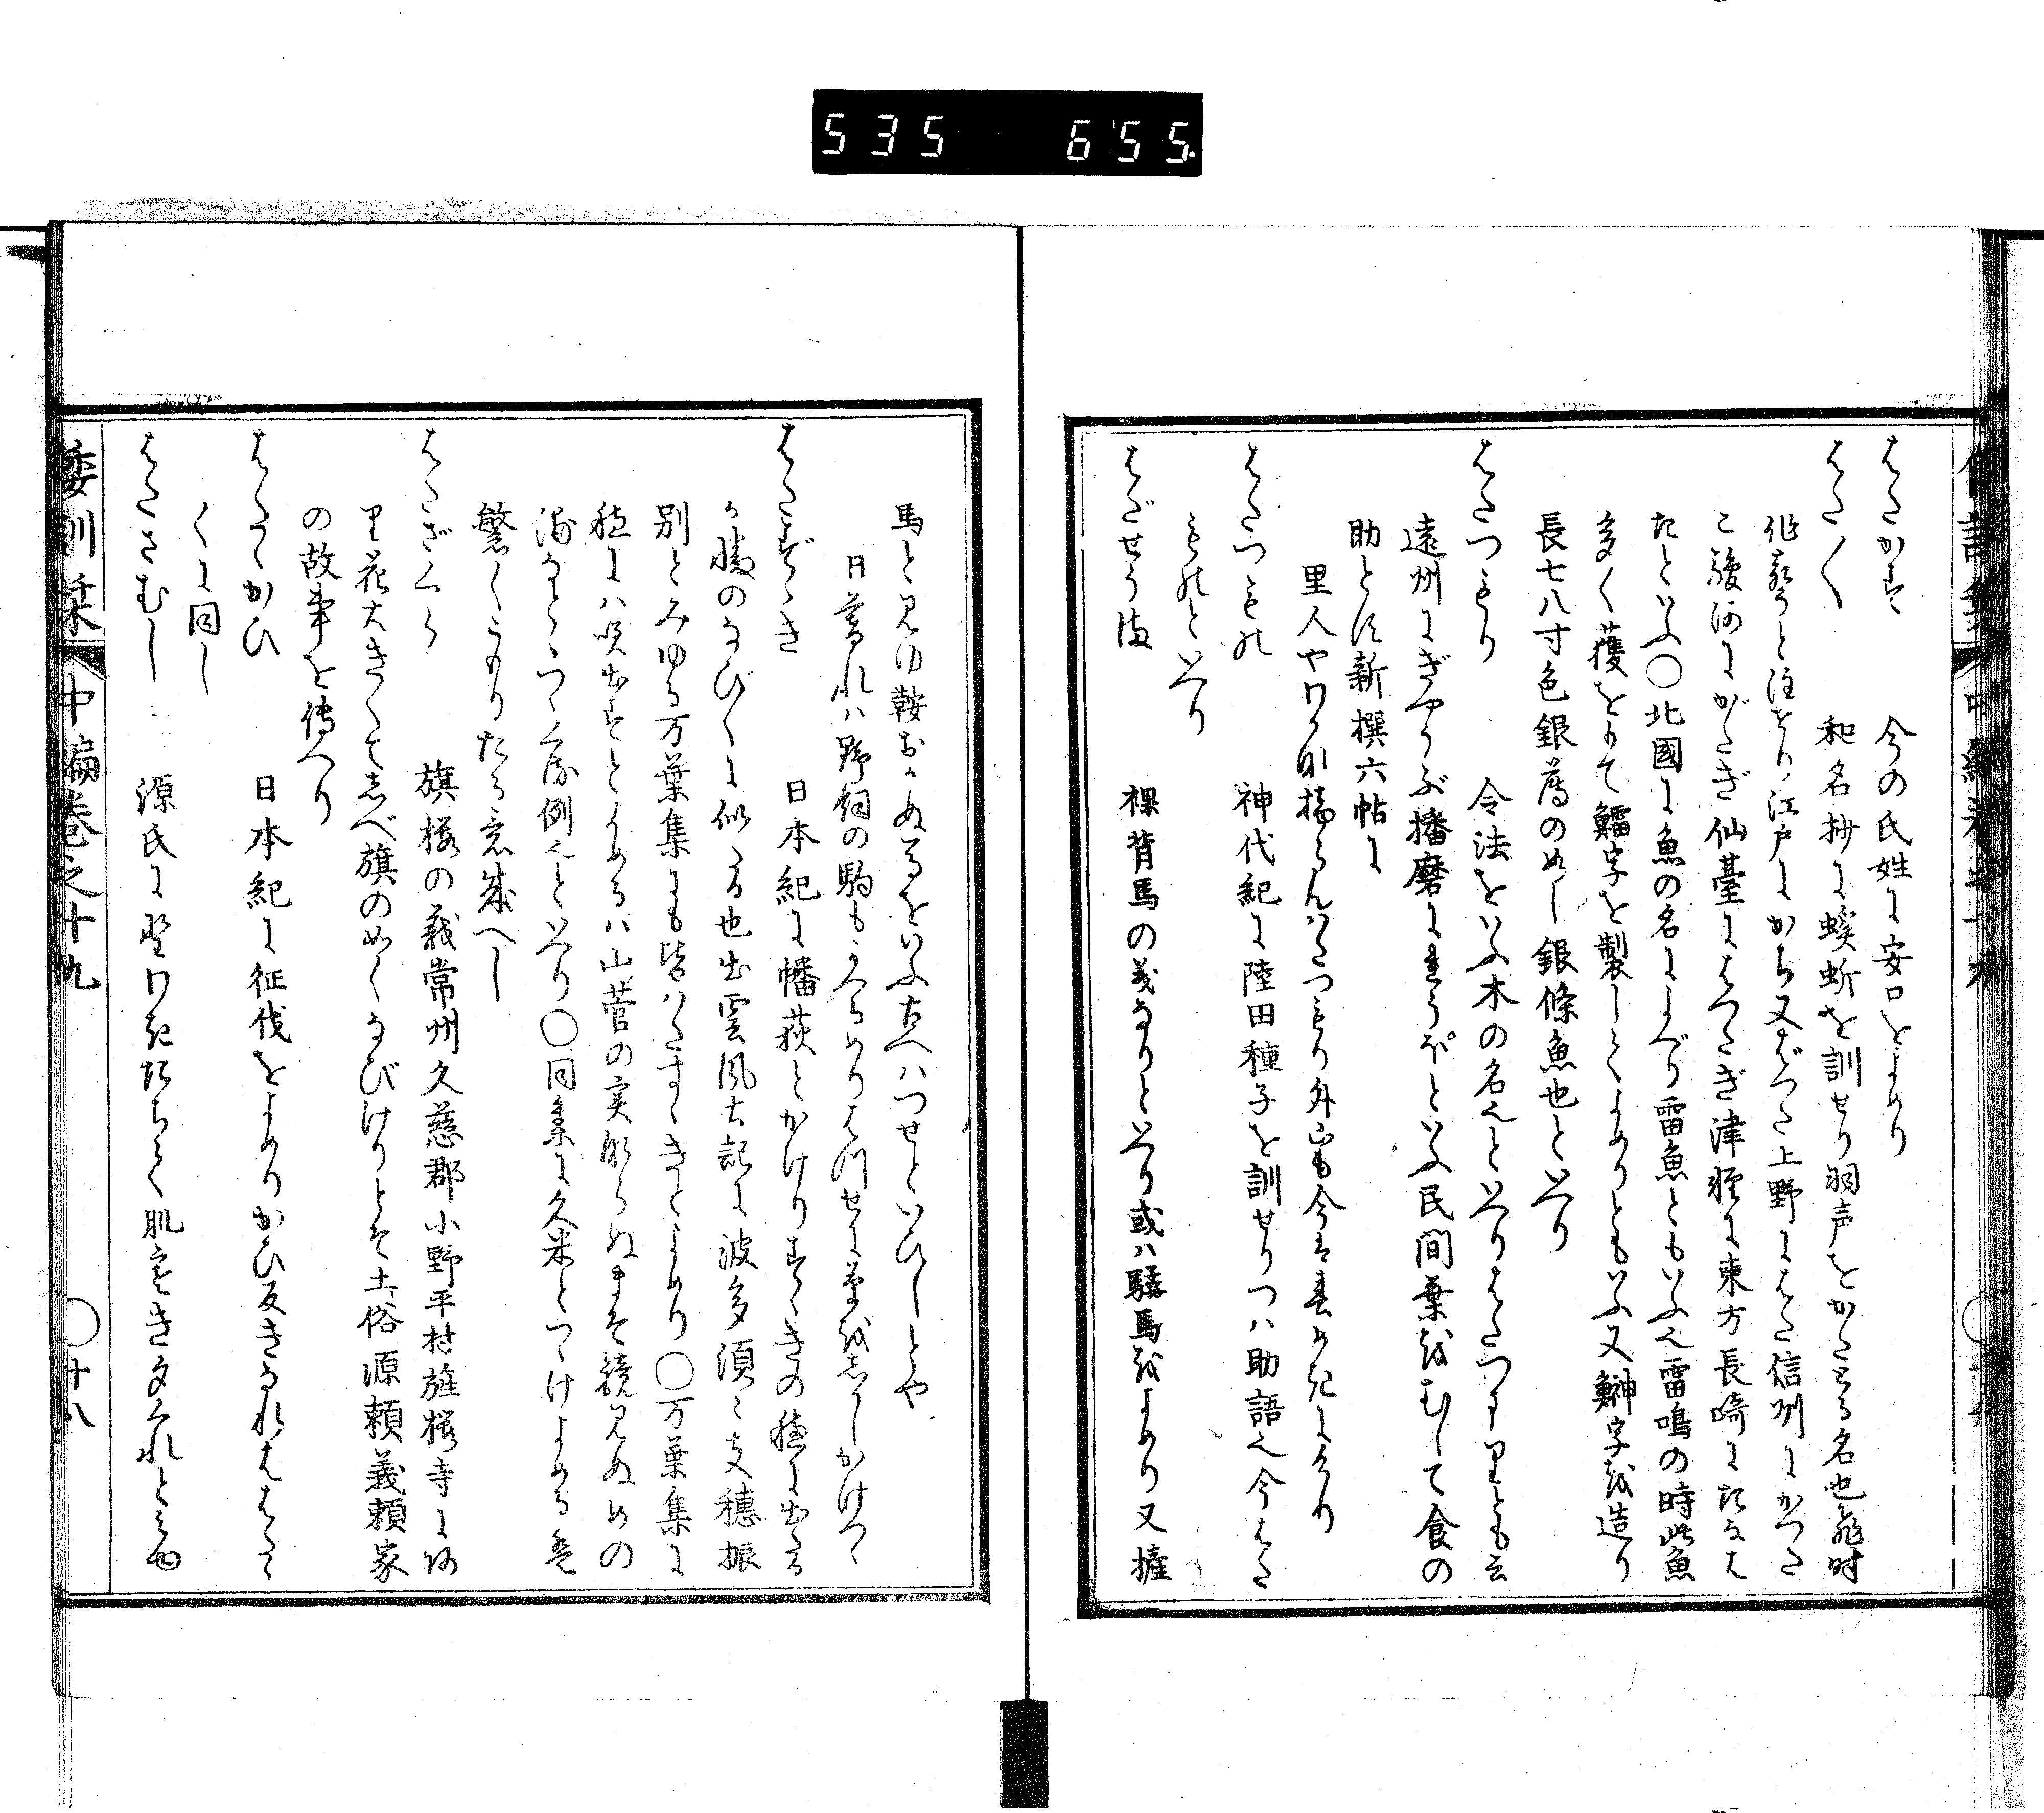 535 655
はたかす 今の氏姓に安口をよめり
はた〱 和名抄に蟿蚸を訓せり羽声をかたとる名也飛時
作声と注せり江戸にかち又ばつた上野にはた信州にかつた
こ駿河にがたぎ仙臺にはつたぎ津軽に東方長崎にたなは
たといふ〇北國に魚の名によべり雷魚ともいふ也雷鳴の時此魚
多く獲をもて鱩字を製してよめりともいふ又鰰字を造り
長七八寸色銀箔の如し銀條魚也といへり
はたつもり 令法をいふ木の名也といへりはたつまりとも云
遠州にぎやうぶ播磨にりやうぼといふ民間葉をむして食の
助とす新撰六帖に
里人やわか那摘らんはたつもり外山も今は春めきにけり
はたつもの 神代紀に陸田種子を訓せりつハ助語也今はた
ものといへり
はだせうま 裸背馬の義なりといへり或ハ驏馬をよめり又
馬と見ゆ鞍おかぬ馬をいふ古へハはつせといひしとや
日暮れハ野飼の駒もかへるめりはたせに草をしかけつゝ
はたすゝき 日本紀に幡荻とかけりすゝきの穂に出たる
か幡のなびくに似たる也出雲風土記に波多須々支穂振
別とみゆる万葉集にも皆ハたすゝきとよめり〇万葉集に
穂にハ咲出すとよめるハ山菅の実ならぬ事を競見ぬめの
浦なとゝつゝくる例也といへり〇同集に久米とつゝけよめるは
繁くこもりたる意成へし
はたざくら 旗桜の義常州久慈郡小野平村旗桜寺にあ
り花大きくてしべ旗の如くなびけりとそ土俗源頼義頼家
の故事を傳へり
はたゝかひ 日本紀に征伐をよめりかひ反きなれははたゝ
くに同し
はださむし 源氏に野わきたちて肌寒き夕くれとみゆ
倭訓栞 中編巻之十九 〇十八